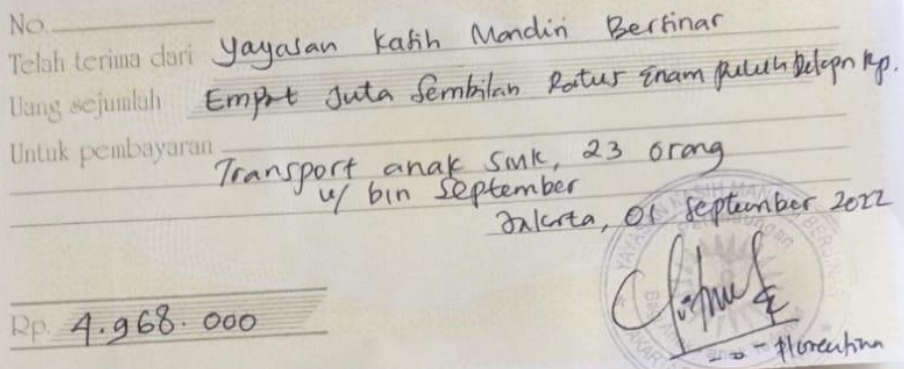 No.
Telah terima dari Yayasan Kasih Mandiri Bersinar
Uang sejumlah Empat Juta Sembilan Ratus Enam Puluh Delapn Rp.
Untuk pembayaran
Transport anak SMK, 23 orang
u/ bln September
Jakarta, 01 September 2022
YAYASAN KASIH MAN BERSINAR
Rp. 4.968.000
Florentina